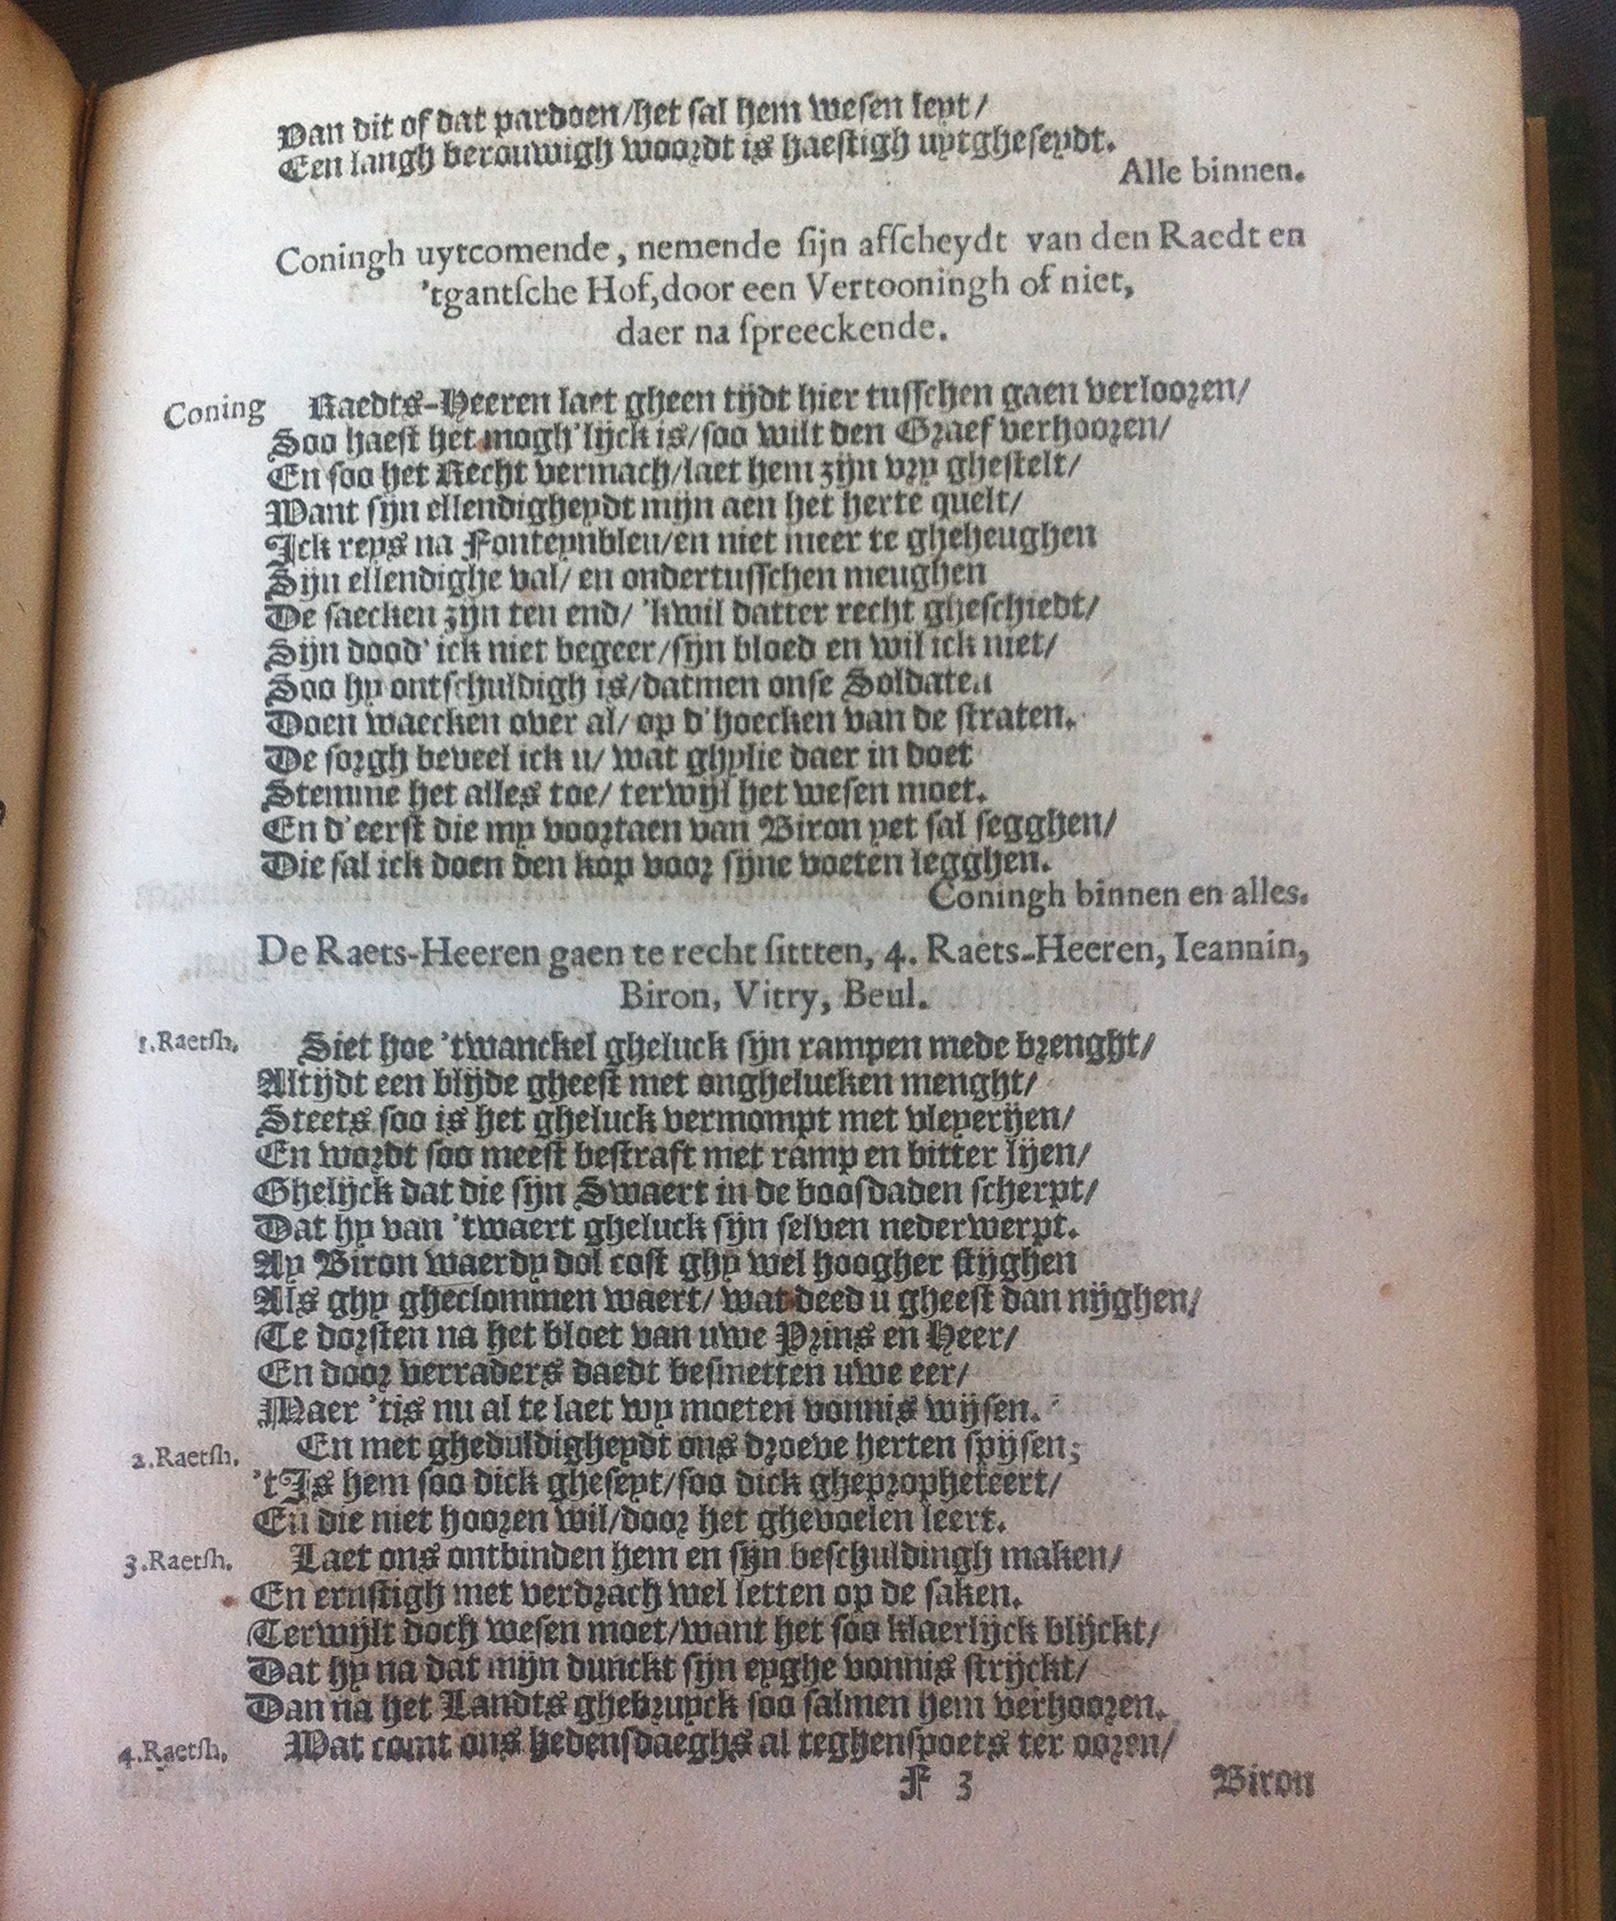 Van dit of dat pardoen/het sal hem wesen leyt/
Een langh berouwigh woordt is haestigh uytgheseydt.
Alle binnen.
Coningh uytcomende, nemende ſijn afſcheydt van den Raedt en
'tgantſche Hof,door een Vertooningh of niet,
daer na ſpreeckende.
Coning Raedts-Heeren laet gheen tijdt hier tusschen gaen verloozen/
Soo haest het mogh'lijck is/soo wilt den Graef verhooren/
En soo het Recht vermach/laet hem zijn vry ghestelt/
Want sijn ellendigheydt mijn aen het herte quelt/
Ick reys na Fonteynbleu/en niet meer te gheheughen
Sijn ellendighe val/ en ondertusschen meughen
De saecken zijn ten end/ 'kwil datter recht gheschiedt/
Sijn dood' ick niet begeer/sijn bloed en wil ick niet/
Soo hy ontschuldigh is/datmen onse Soldaten
Doen waecken over al/ op d'hoecken van de straten.
De sorgh beveel ick u/ wat ghylie daer in doet
Stemme het alles toe/ terwijl het wesen moet.
En d'eerst die my voortaen van Biron yet sal segghen/
Die sal ick doen den kop voor sijne voeten legghen.
Coningh binnen en alles.
De Raets-Heeren gaen te recht ſittten, 4. Raets-Heeren, Ieannin,
Biron, Vitry, Beul.
1.Raetſh. Siet hoe 'twanckel gheluck sijn rampen mede brenght/
Altijdt een blijde gheest met onghelucken menght/
Steets soo is het gheluck vermompt met vleyerijen/
En wordt soo meest bestraft met ramp en bitter lijen/
Ghelijck dat die sijn Swaert in de boosdaden scherpt/
Dat hy van 'twaert gheluck sijn selven nederwerpt.
Ay Biron waerdy dol cost ghy wel hoogher stijghen
Als ghy gheclommen waert/ wat deed u gheest dan nijghen/
Te dorsten na het bloet van uwe Prins en Heer/
En door verraders daedt besmetten uwe eer/
Maer 'tis nu al te laet wy moeten vonnis wijsen.
2.Raetſh. En met gheduldigheydt ons droeve herten spijsen;
'tIs hem soo dick gheseyt/soo dick ghepropheteert/
En die niet hooren wil/door het ghevoelen leert.
3.Raetſh. Laet ons ontbinden hem en sijn beschuldingh maken/
En ernstigh met verdrach wel letten op de saken.
Terwijlt doch wesen moet/want het soo klaerlijck blijckt/
Dat hy na dat mijn dunckt sijn eyghe vonnis strijckt/
Dan na het Landts ghebruyck soo salmen hem verhooren.
4.Raetſh. Wat comt ons hedensdaeghs al teghenspoets ter ooren/
F 3 Biron